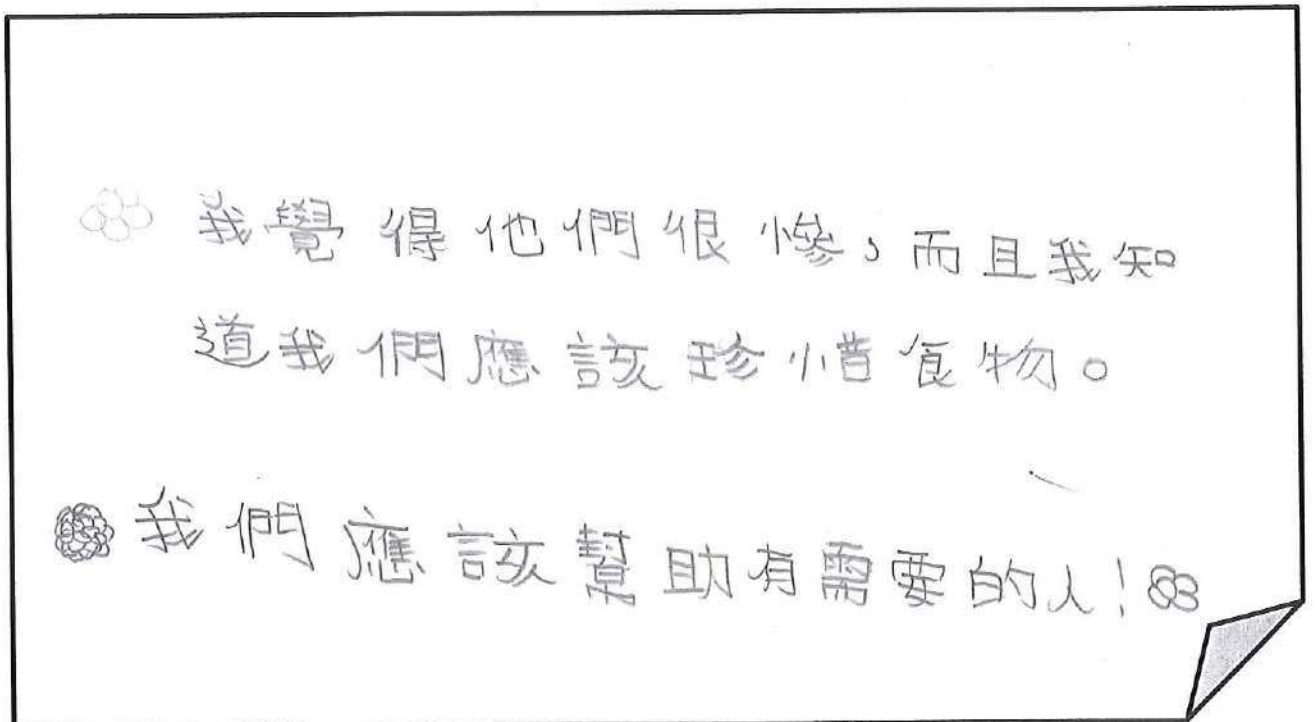 我覺得他們很慘，而且我知
道我們應該珍惜食物。
我們應該幫助有需要的人！